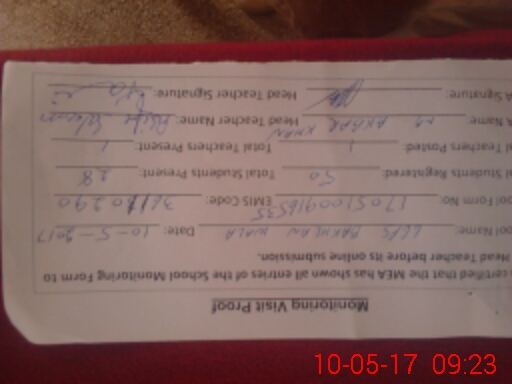 Monitoring Visit Proof
certified that the MEA has shown all entries of the School Monitoring Form to
Head Teacher before its online submission.
ool Name: LCPS BAKHLAN WALA Date: 10-5-2017
ool Form No: 170510091653 EMIS Code:
Students Registered: 50 Total Students Present: 28
Teachers Posted: 1 Total Teachers Present: 1
A Name: M AKBAR KHAN Head Teacher Name:
A Signature: Head Teacher Signature:
10-05-17 09:23